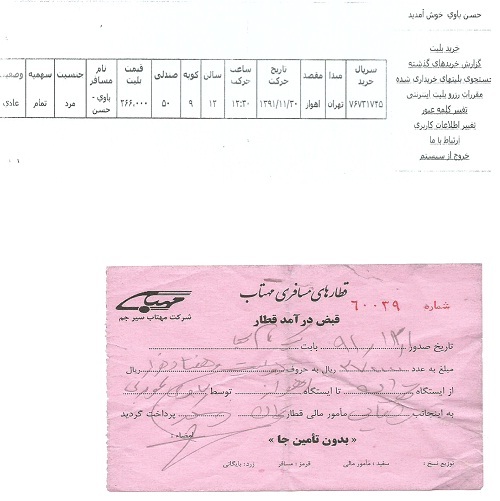 حسن باوي خوش آمديد
خريد بليت
گزارش خريدهاي گذشته
جستجوي بليتهاي خريداري شده
مقررات رزرو بليت اينترنتي
تغيير كلمه عبور
تغيير اطلاعات كاربري
ارتباط با ما
خروج از سيستم
سريال خريد مبدا مقصد تاريخ حركت ساعت حركت سالن كوپه صندلي قيمت بليت نام مسافر جنسيت سهميه وضعيت
۷۶۷۳۱۷۲۵ تهران اهواز ۱۳۹۱/۱۱/۳۰ ۱۲:۳۰ ۱۲ ۹ ۵۰ ۲۶۶,۰۰۰ باوي - حسن مرد تمام عادي
قطارهای مسافری مهتاب
شماره ۶۰۰۲۹
مهتاب
شرکت مهتاب سیر جم
قبض درآمد قطار
تاریخ صدور بابت
مبلغ به عدد ریال به حروف ریال
از ایستگاه تا ایستگاه توسط
به اینجانب مأمور مالی قطار پرداخت گردید
« بدون تأمین جا »
امضاء :
توزیع نسخ : سفید : مأمور مالی قرمز : مسافر زرد: بایگانی